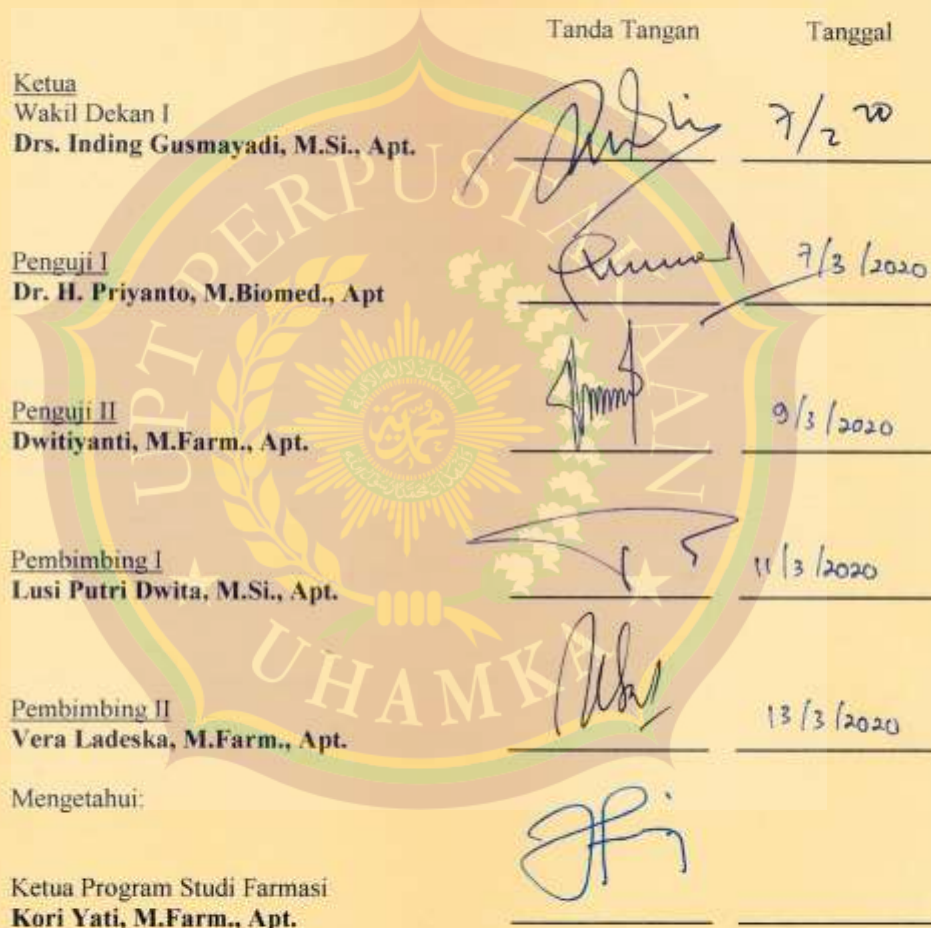 Tanda Tangan Tanggal
Ketua
Wakil Dekan I
Drs. Inding Gusmayadi, M.Si., Apt.
7/2 20
Penguji I
Dr. H. Priyanto, M.Biomed., Apt
7/3/2020
Penguji II
Dwitiyanti, M.Farm., Apt.
9/3/2020
Pembimbing I
Lusi Putri Dwita, M.Si., Apt.
11/3/2020
Pembimbing II
Vera Ladeska, M.Farm., Apt.
13/3/2020
Mengetahui:
Ketua Program Studi Farmasi
Kori Yati, M.Farm., Apt.
UPT PERPUSTAKAAN
UHAMKA